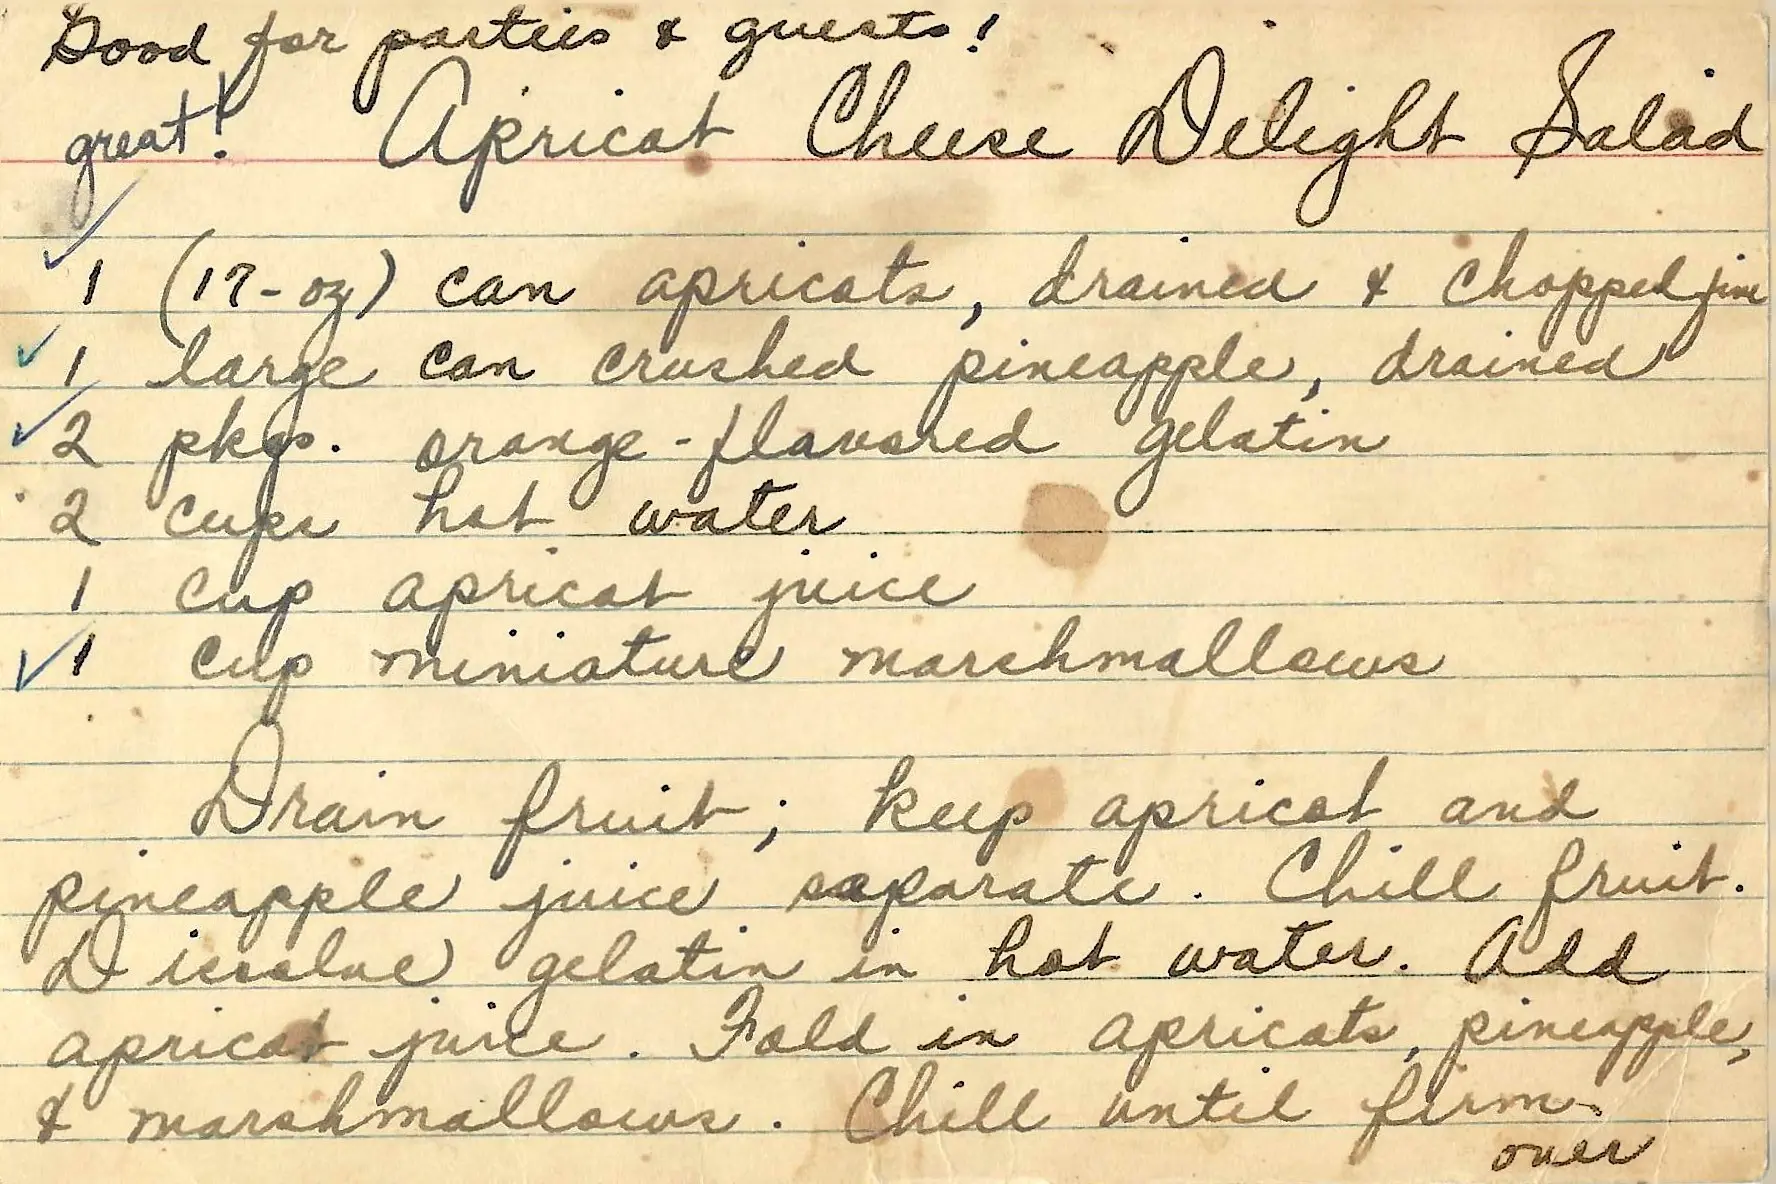 Good for parties & guests!
great! Apricot Cheese Delight Salad
1 (17-oz) can apricots, drained & chopped fine
1 large can crushed pineapple, drained
2 pkgs. orange-flavored gelatin
2 cups hot water
1 cup apricot juice
1 cup miniature marshmallows
Drain fruit; keep apricot and
pineapple juice separate. Chill fruit.
Dissolve gelatin in hot water. Add
apricot juice. Fold in apricots, pineapple,
& marshmallows. Chill until firm.
over